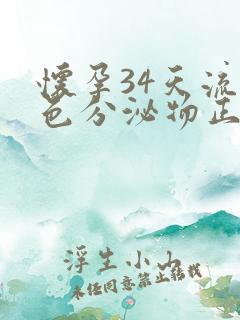 懷孕34天流
色分泌物正
浮生小山
未经同意禁止转载